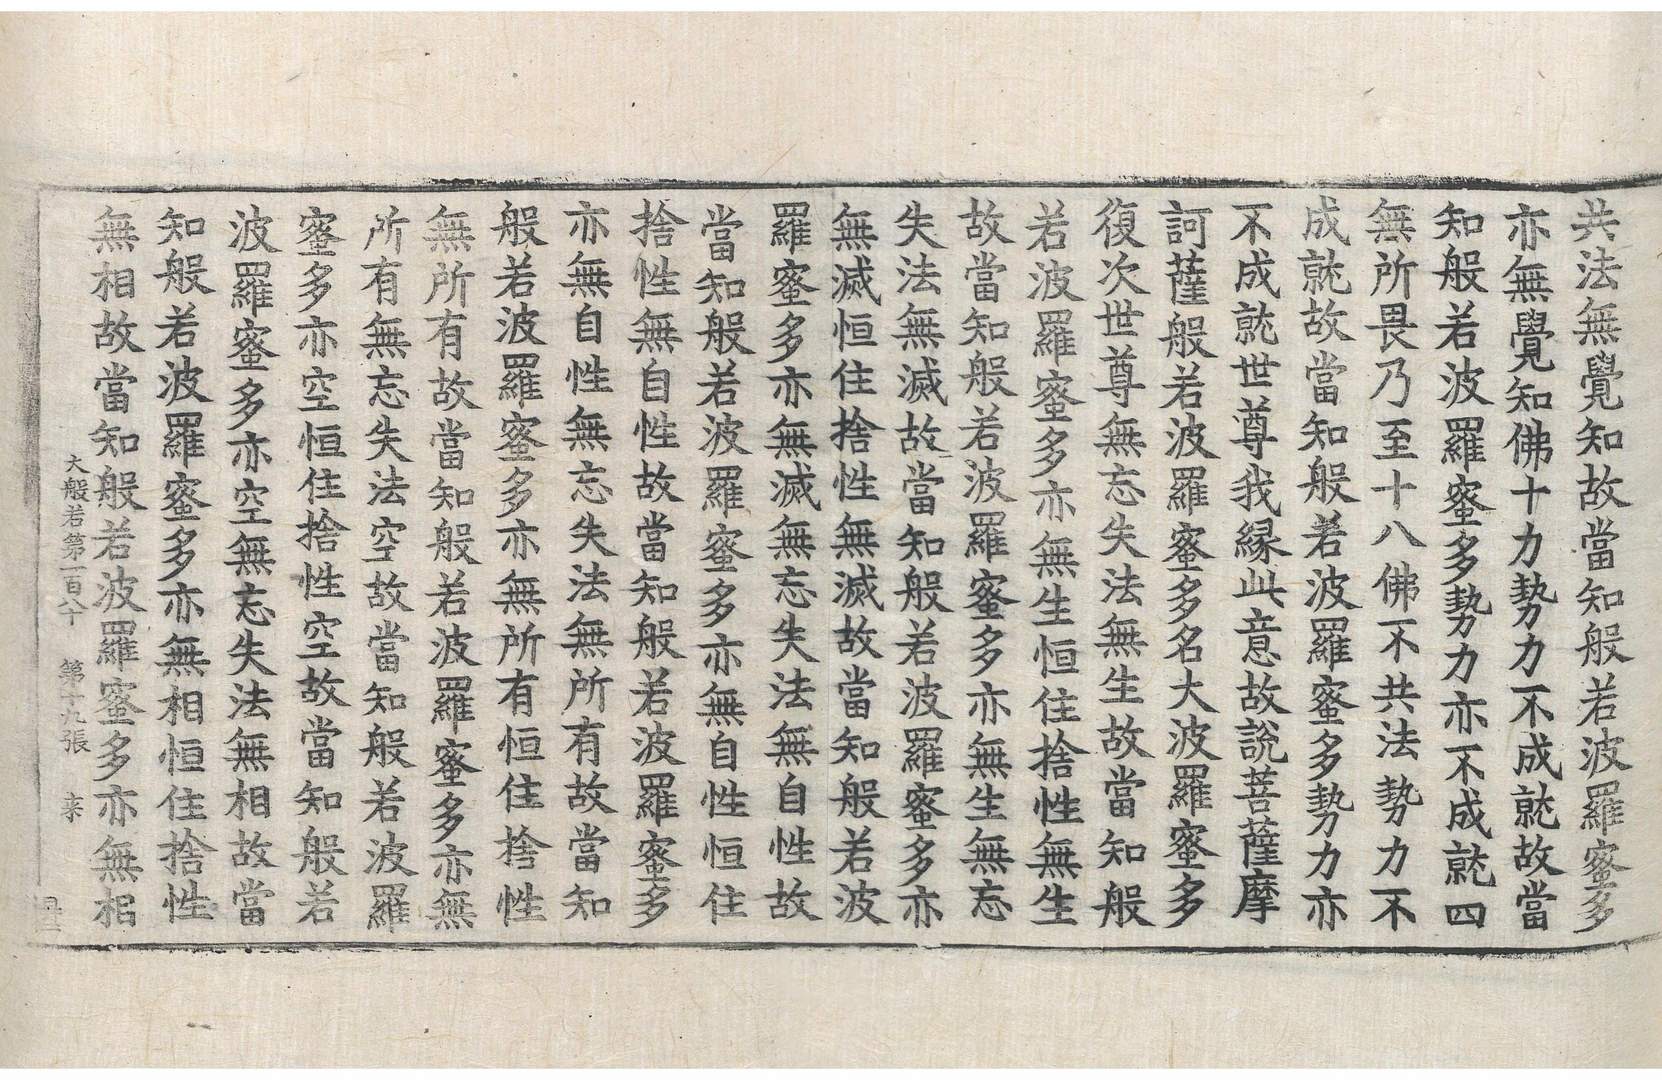 共法無覺知故當知般若波羅蜜多
亦無覺知佛十力勢力不成就故當
知般若波羅蜜多勢力亦不成就四
無所畏乃至十八佛不共法勢力不
成就故當知般若波羅蜜多勢力亦
不成就世尊我緣此意故說菩薩摩
訶薩般若波羅蜜多名大波羅蜜多
復次世尊無忘失法無生故當知般
若波羅蜜多亦無生恒住捨性無生
故當知般若波羅蜜多亦無生無忘
失法無滅故當知般若波羅蜜多亦
無滅恒住捨性無滅故當知般若波
羅蜜多亦無滅無忘失法無自性故
當知般若波羅蜜多亦無自性恒住
捨性無自性故當知般若波羅蜜多
亦無自性無忘失法無所有故當知
般若波羅蜜多亦無所有恒住捨性
無所有故當知般若波羅蜜多亦無
所有無忘失法空故當知般若波羅
蜜多亦空恒住捨性空故當知般若
波羅蜜多亦空無忘失法無相故當
知般若波羅蜜多亦無相恒住捨性
無相故當知般若波羅蜜多亦無相
大般若第一百八十 第十九張 来